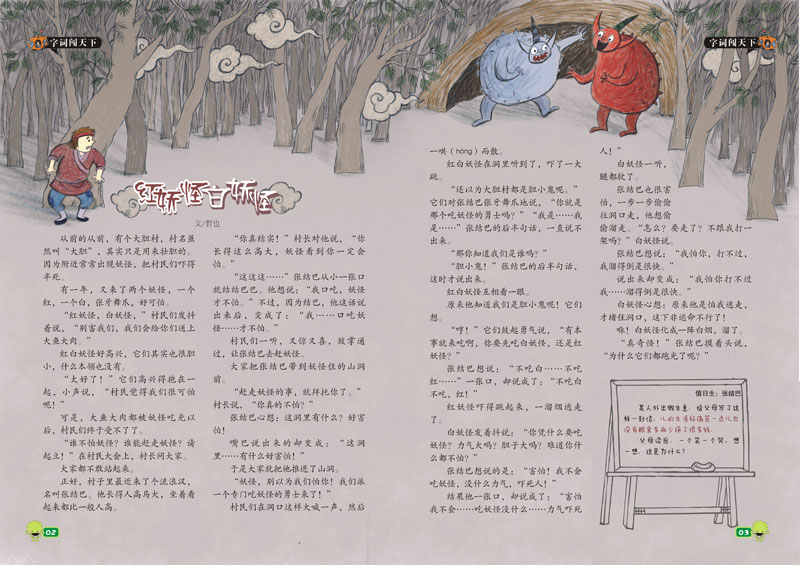 字词闯天下
红妖怪白妖怪
文/哲也
从前的从前，有个大胆村，村名虽
然叫“大胆”，其实只是用来壮胆的。
因为附近常常出现妖怪，把村民们吓得
半死。
有一年，又来了两个妖怪，一个
红，一个白，张牙舞爪，好可怕。
“红妖怪，白妖怪，”村民们发抖
着说，“别害我们，我们会给你们送上
大鱼大肉。”
红白妖怪好高兴，它们其实也很胆
小，什么本领也没有。
“太好了！”它们高兴得抱在一
起，小声说，“村民觉得我们很可怕
呢！”
可是，大鱼大肉都被妖怪吃光以
后，村民们终于受不了了。
“谁不怕妖怪？谁能赶走妖怪？请
起立！”在村民大会上，村长问大家。
大家都不敢站起来。
正好，村子里最近来了个流浪汉，
名叫张结巴。他长得人高马大，坐着看
起来都比一般人高。
“你真结实！”村长对他说，“你
长得这么高大，妖怪看到你一定会
怕。”
“这这这……”张结巴从小一张口
就结结巴巴。他想说：“我口吃，妖怪
才不怕。”不过，因为结巴，他这话说
出来后，变成了：“我……口吃妖
怪……才不怕。”
村民们一听，又惊又喜，敲锣打
通，让张结巴去赶妖怪。
大家把张结巴带到妖怪住的山洞
前。
“赶走妖怪的事，就拜托你了。”
村长说，“你真的不怕？”
张结巴心想：这洞里有什么？好害
怕！
嘴巴说出来的却变成：“这洞
里……有什么好害怕！”
于是大家就把他推进了山洞。
“妖怪，别以为我们怕你！我们派
一个专门吃妖怪的勇士来了！”
村民们在洞口这样大喊一声，然后
02
字词闯天下
一哄（hòng）而散。
红白妖怪在洞里听到了，吓了一大
跳。
“还以为大胆村都是胆小鬼呢。”
它们对张结巴张牙舞爪地说，“你就是
那个吃妖怪的勇士吗？”“我是……我
是……”张结巴的后半句话，一直说不
出来。
“那你知道我们是谁吗？”
“胆小鬼！”张结巴的后半句话，
这时才说出来。
红白妖怪互相看一眼。
原来他知道我们是胆小鬼呢！它们
想。
“哼！”它们鼓起勇气说，“有本
事就来吃啊，你要先吃白妖怪，还是红
妖怪？”
张结巴想说：“不吃白……不吃
红……”一张口，却说成了：“不吃白
不吃，红！”
红妖怪吓得跳起来，一溜烟逃走
了。
白妖怪发着抖说：“你凭什么要吃
妖怪？力气大吗？胆子大吗？难道你什
么都不怕？”
张结巴想说的是：“害怕！我不会
吃妖怪，没什么力气，吓死人！”
结果他一张口，却说成了：“害怕
我不会……吃妖怪没什么……力气吓死
人！”
白妖怪一听，
腿都软了。
张结巴也很害
怕，一步一步偷偷
往洞口走，他想偷
偷溜走。“怎么？要走了？不跟我打一
架吗？”白妖怪说。
张结巴想说：“我怕你，打不过，
我溜得倒是很快。”
说出来却变成：“我怕你打不过
我……溜得倒是很快。”
白妖怪心想：原来他是怕我逃走，
才堵住洞口，这下非逃命不行了！
咻！白妖怪化成一阵白烟，溜了。
“真奇怪！”张结巴摸着头说，
“为什么它们都跑光了呢？”
值日生：张结巴
某人外出做生意，给父母写了这
样一封信：儿的生活好痛苦一点儿也
没有粮食多病少挣了很多钱。
父母读后，一个哭一个笑。想
一想，这是为什么？
03